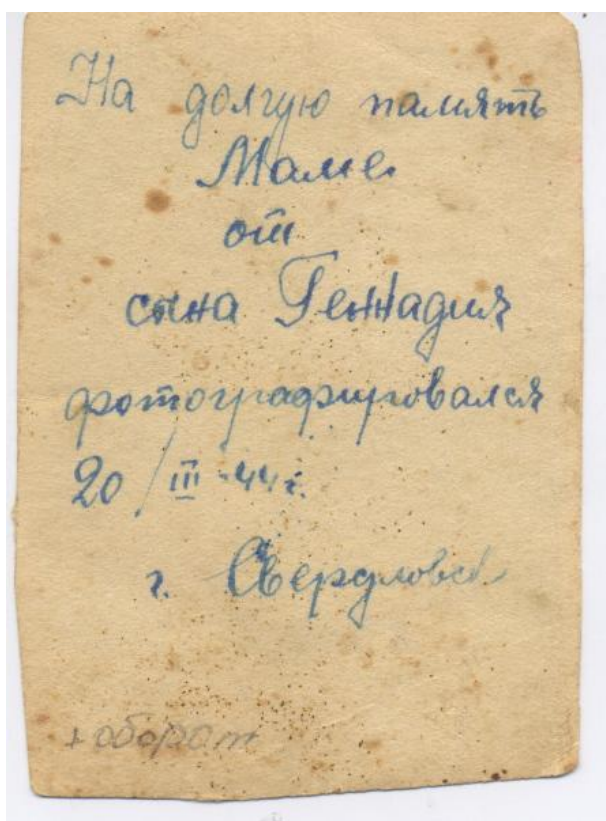 На долгую память
Маме
от
сына Геннадия
фотографировался
20/III-44 г.
г. Свердловск
+ оборот